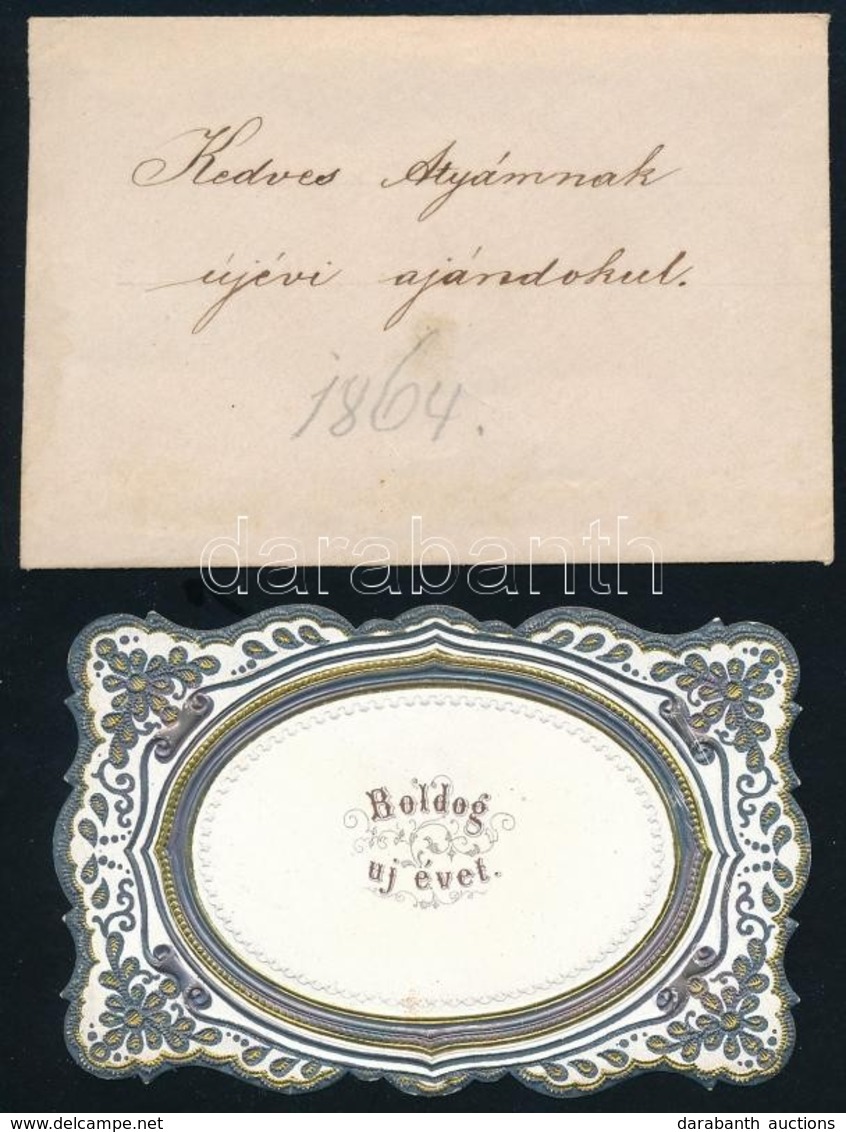 Kedves Atyámnak
újévi ajándokul.
1864.
darabanth
Boldog
uj évet.
delcampe.net
darabanth auctions